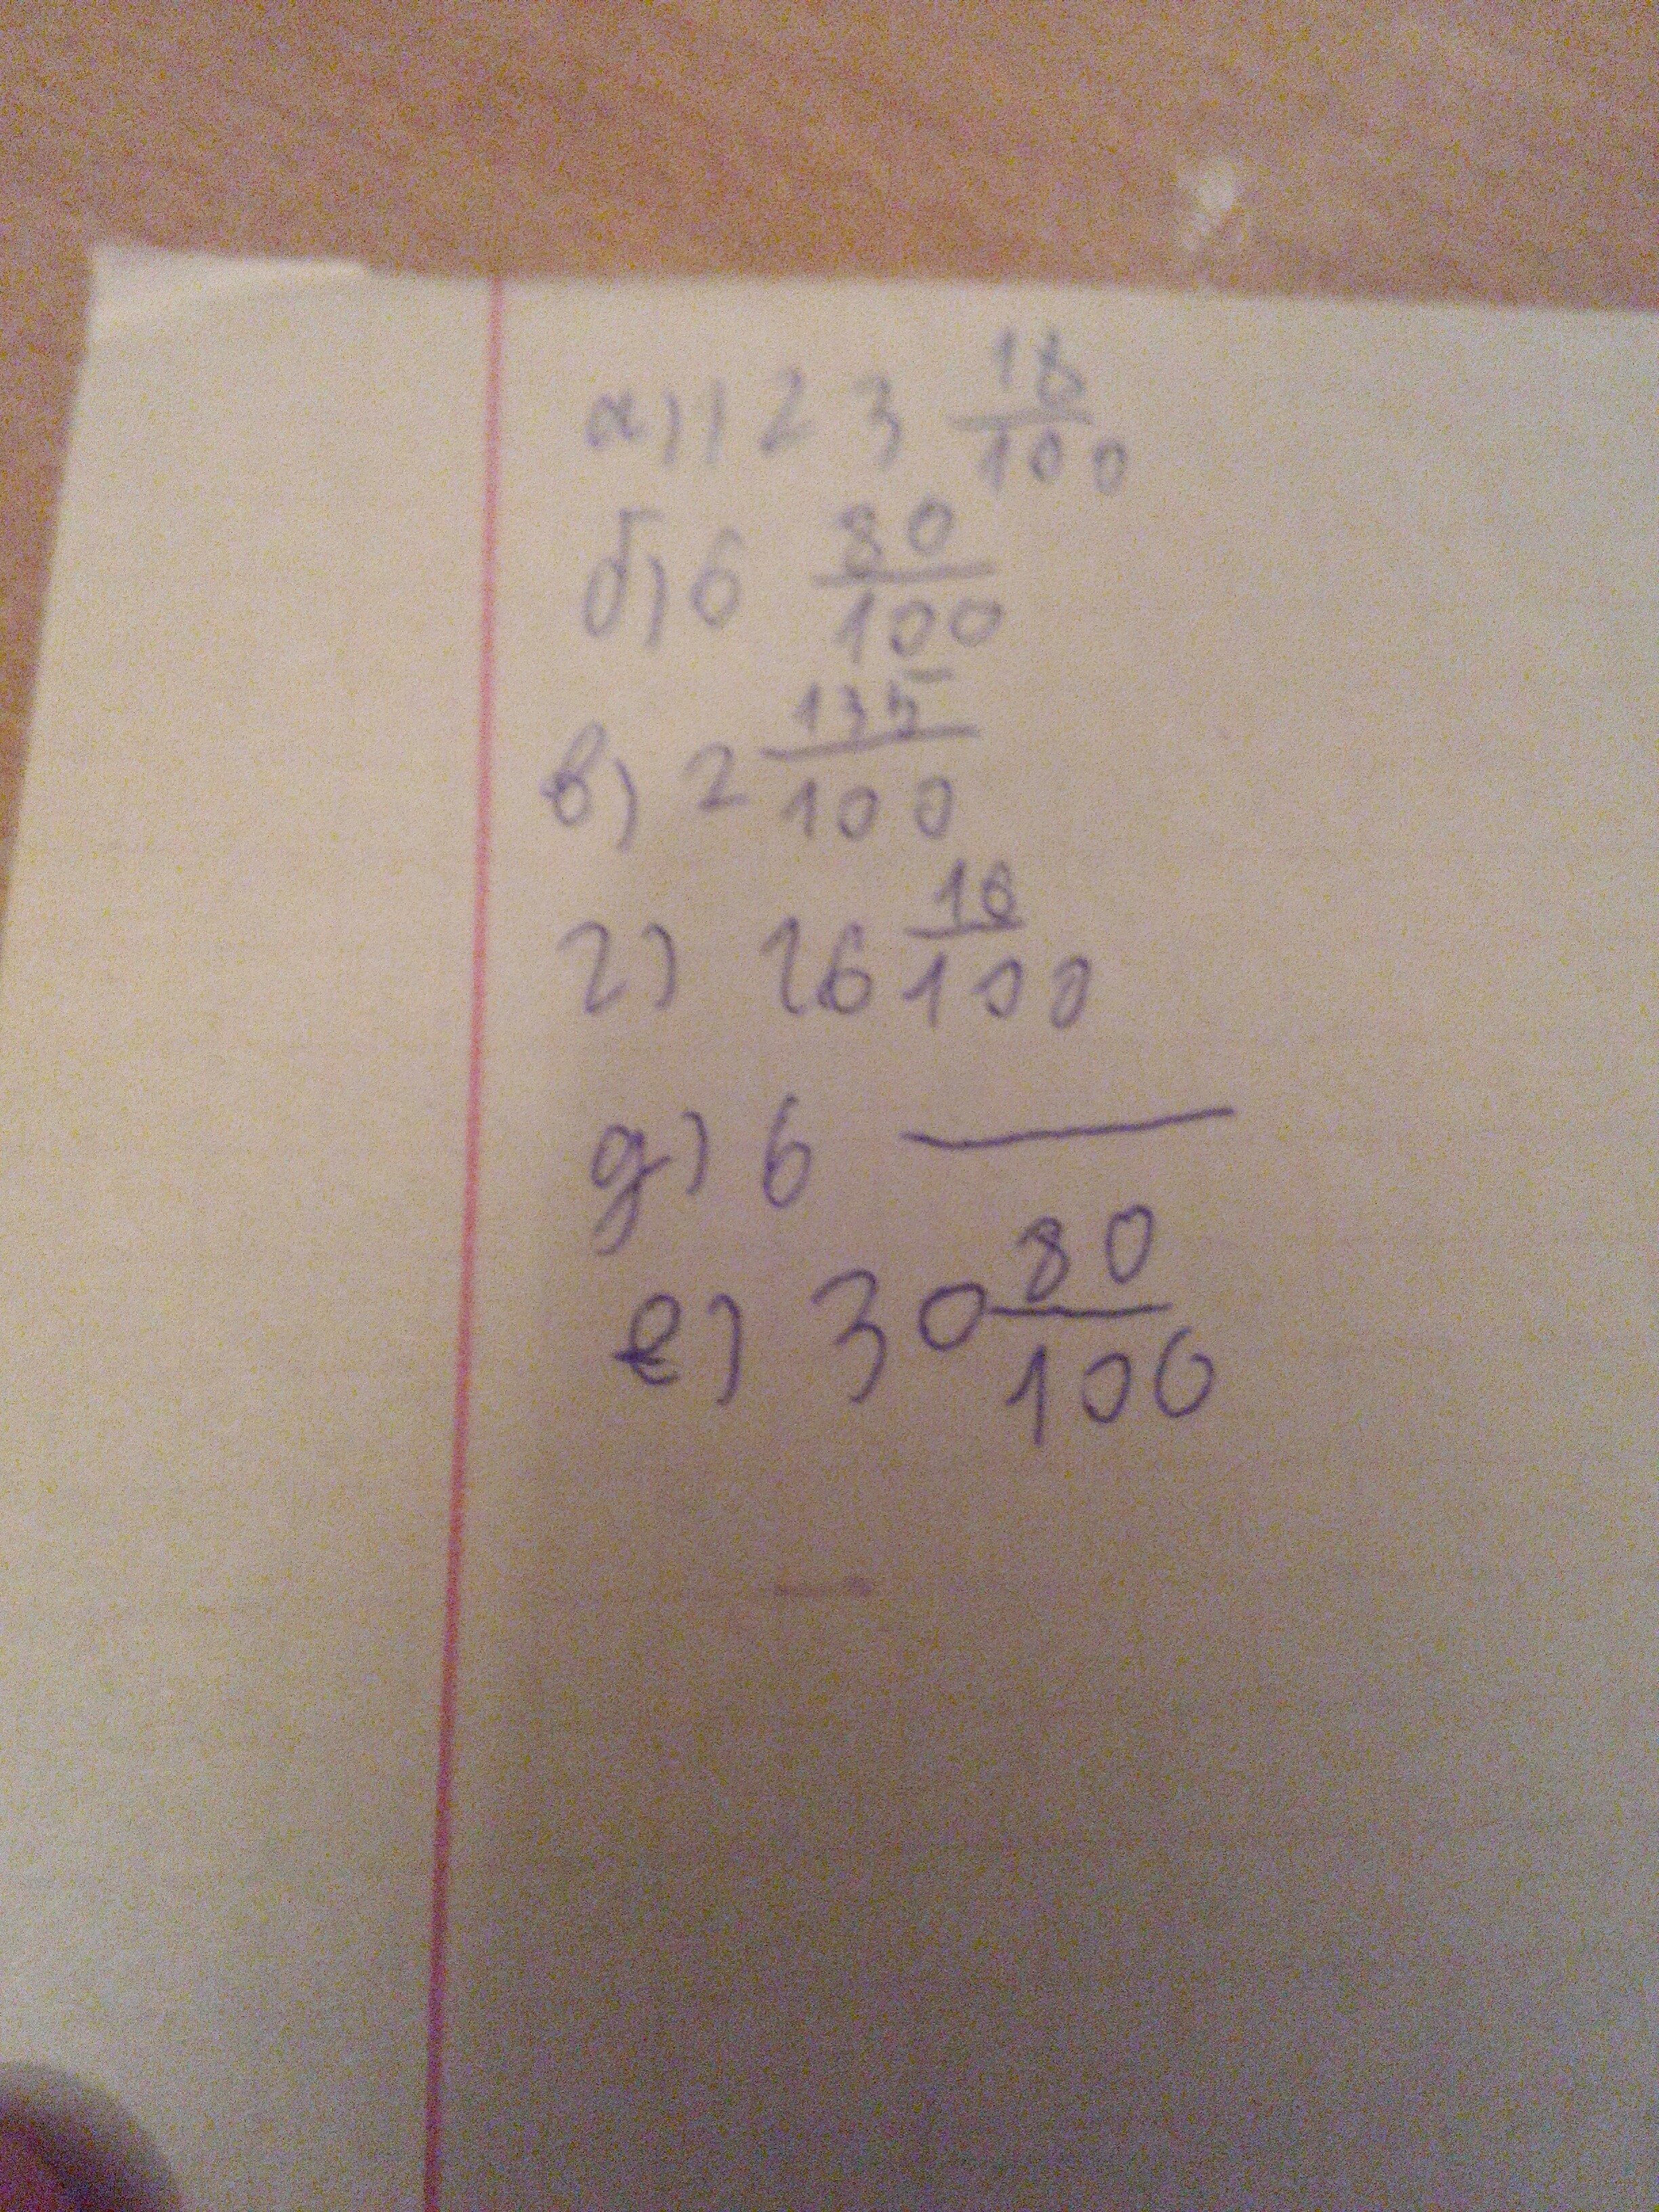 а) 123 18/100
б) 6 80/100
в) 2 135/100
г) 26 16/100
д) 6 —
е) 30 80/100